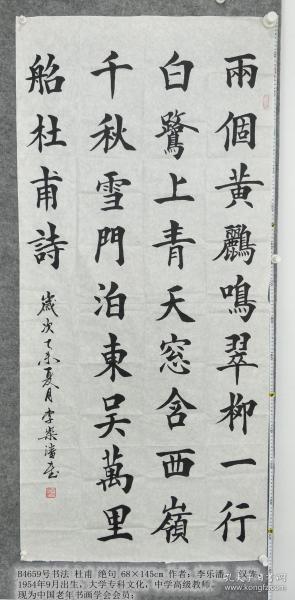 兩個黃鸝鳴翠柳一行
白鷺上青天窓含西嶺
千秋雪門泊東吳萬里
船杜甫詩
歲次乙未夏月李樂潘書
B4659号书法 杜甫 绝句 68×145cm 作者：李乐潘， 汉族，
1954年9月出生，大学专科文化，中学高级教师，
现为中国老年书画学会会员；